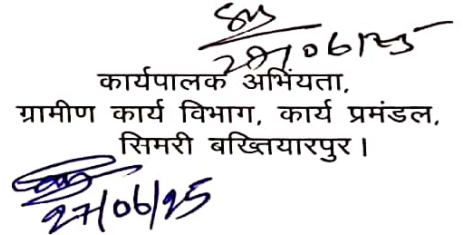 27/06/25
कार्यपालक अभिंयता,
ग्रामीण कार्य विभाग, कार्य प्रमंडल,
सिमरी बख्तियारपुर।
27/06/25